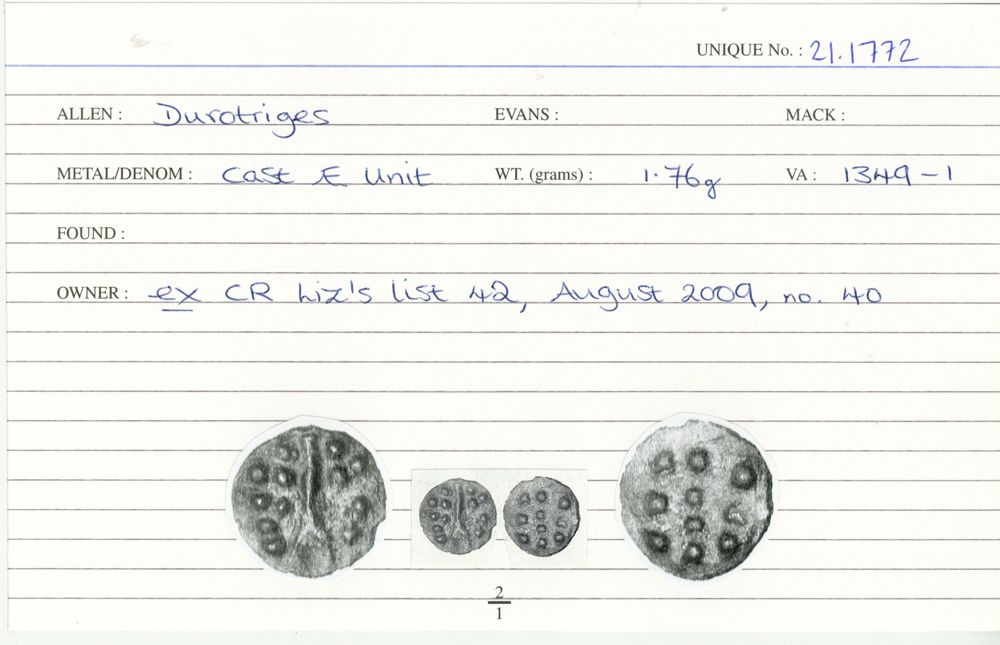 UNIQUE No. : 21.1772
ALLEN : Durotriges EVANS : MACK :
METAL/DENOM : Cast Æ Unit WT. (grams) : 1.76g VA : 1349-1
FOUND :
OWNER : ex CR Liz's list 42, August 2009, no. 40
2
1